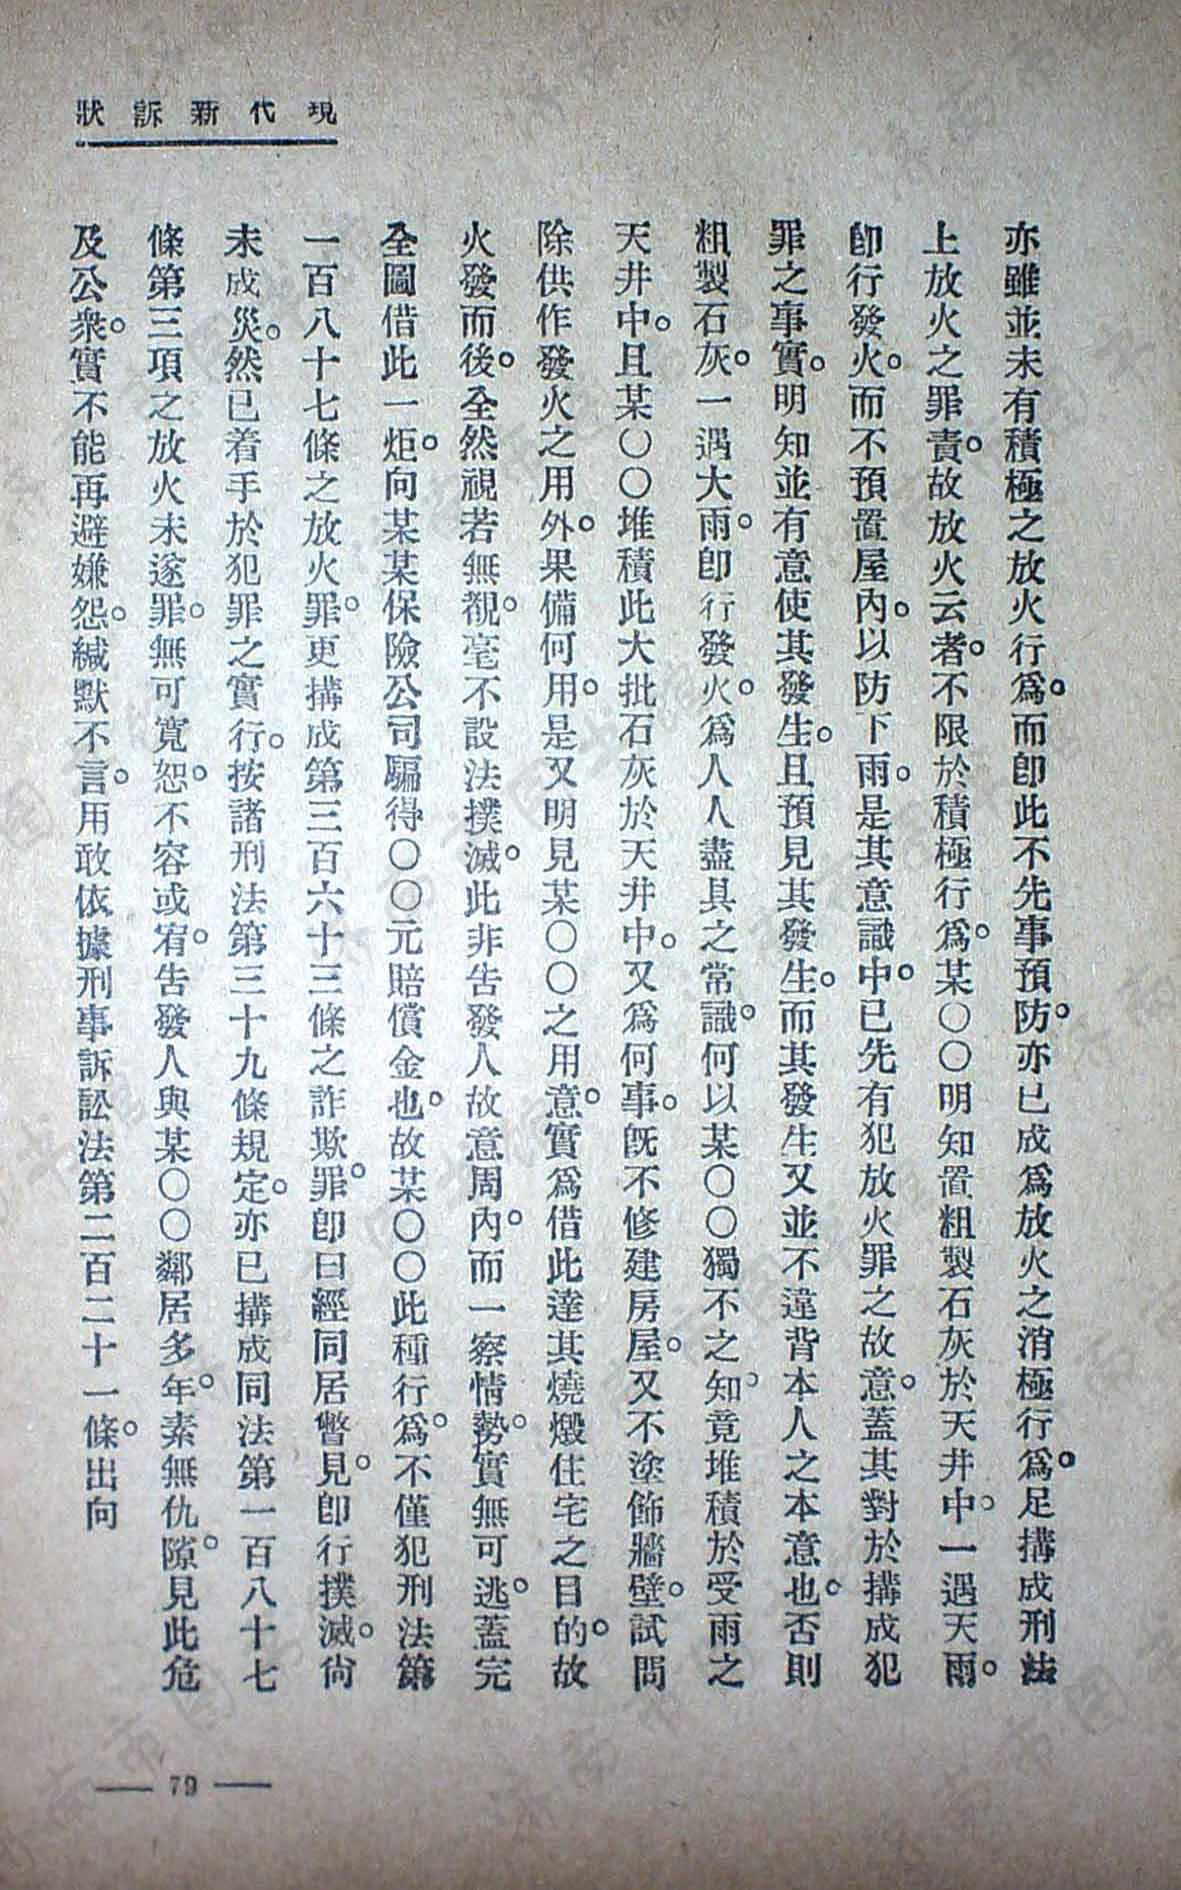 現代新訴狀
亦雖並未有積極之放火行爲。而卽此不先事預防。亦已成爲放火之消極行爲。足搆成刑法
上放火之罪責。故放火云者。不限於積極行爲。某〇〇明知置粗製石灰於天井中。一遇天雨。
卽行發火。而不預置屋內。以防下雨。是其意識中。已先有犯放火罪之故意。蓋其對於搆成犯
罪之事實。明知並有意使其發生。且預見其發生。而其發生又並不違背本人之本意也。否則
粗製石灰。一遇大雨。卽行發火。爲人人盡具之常識。何以某〇〇獨不之知。竟堆積於受雨之
天井中。且某〇〇堆積此大批石灰於天井中。又爲何事。旣不修建房屋。又不塗飾牆壁。試問
除供作發火之用外。果備何用。是又明見某〇〇之用意。實爲借此達其燒燬住宅之目的。故
火發而後。全然視若無覩。毫不設法撲滅。此非告發人故意周內。而一察情勢。實無可逃。蓋完
全圖借此一炬。向某某保險公司騙得〇〇元賠償金也。故某〇〇此種行爲。不僅犯刑法第
一百八十七條之放火罪。更搆成第三百六十三條之詐欺罪。卽曰經同居瞥見。卽行撲滅。尙
未成災。然已着手於犯罪之實行。按諸刑法第三十九條規定。亦已搆成同法第一百八十七
條第三項之放火未遂罪。無可寬恕。不容或宥。告發人與某〇〇鄰居多年。素無仇隙。見此危
及公衆。實不能再避嫌怨。緘默不言。用敢依據刑事訴訟法第二百二十一條。出向
— 79 —